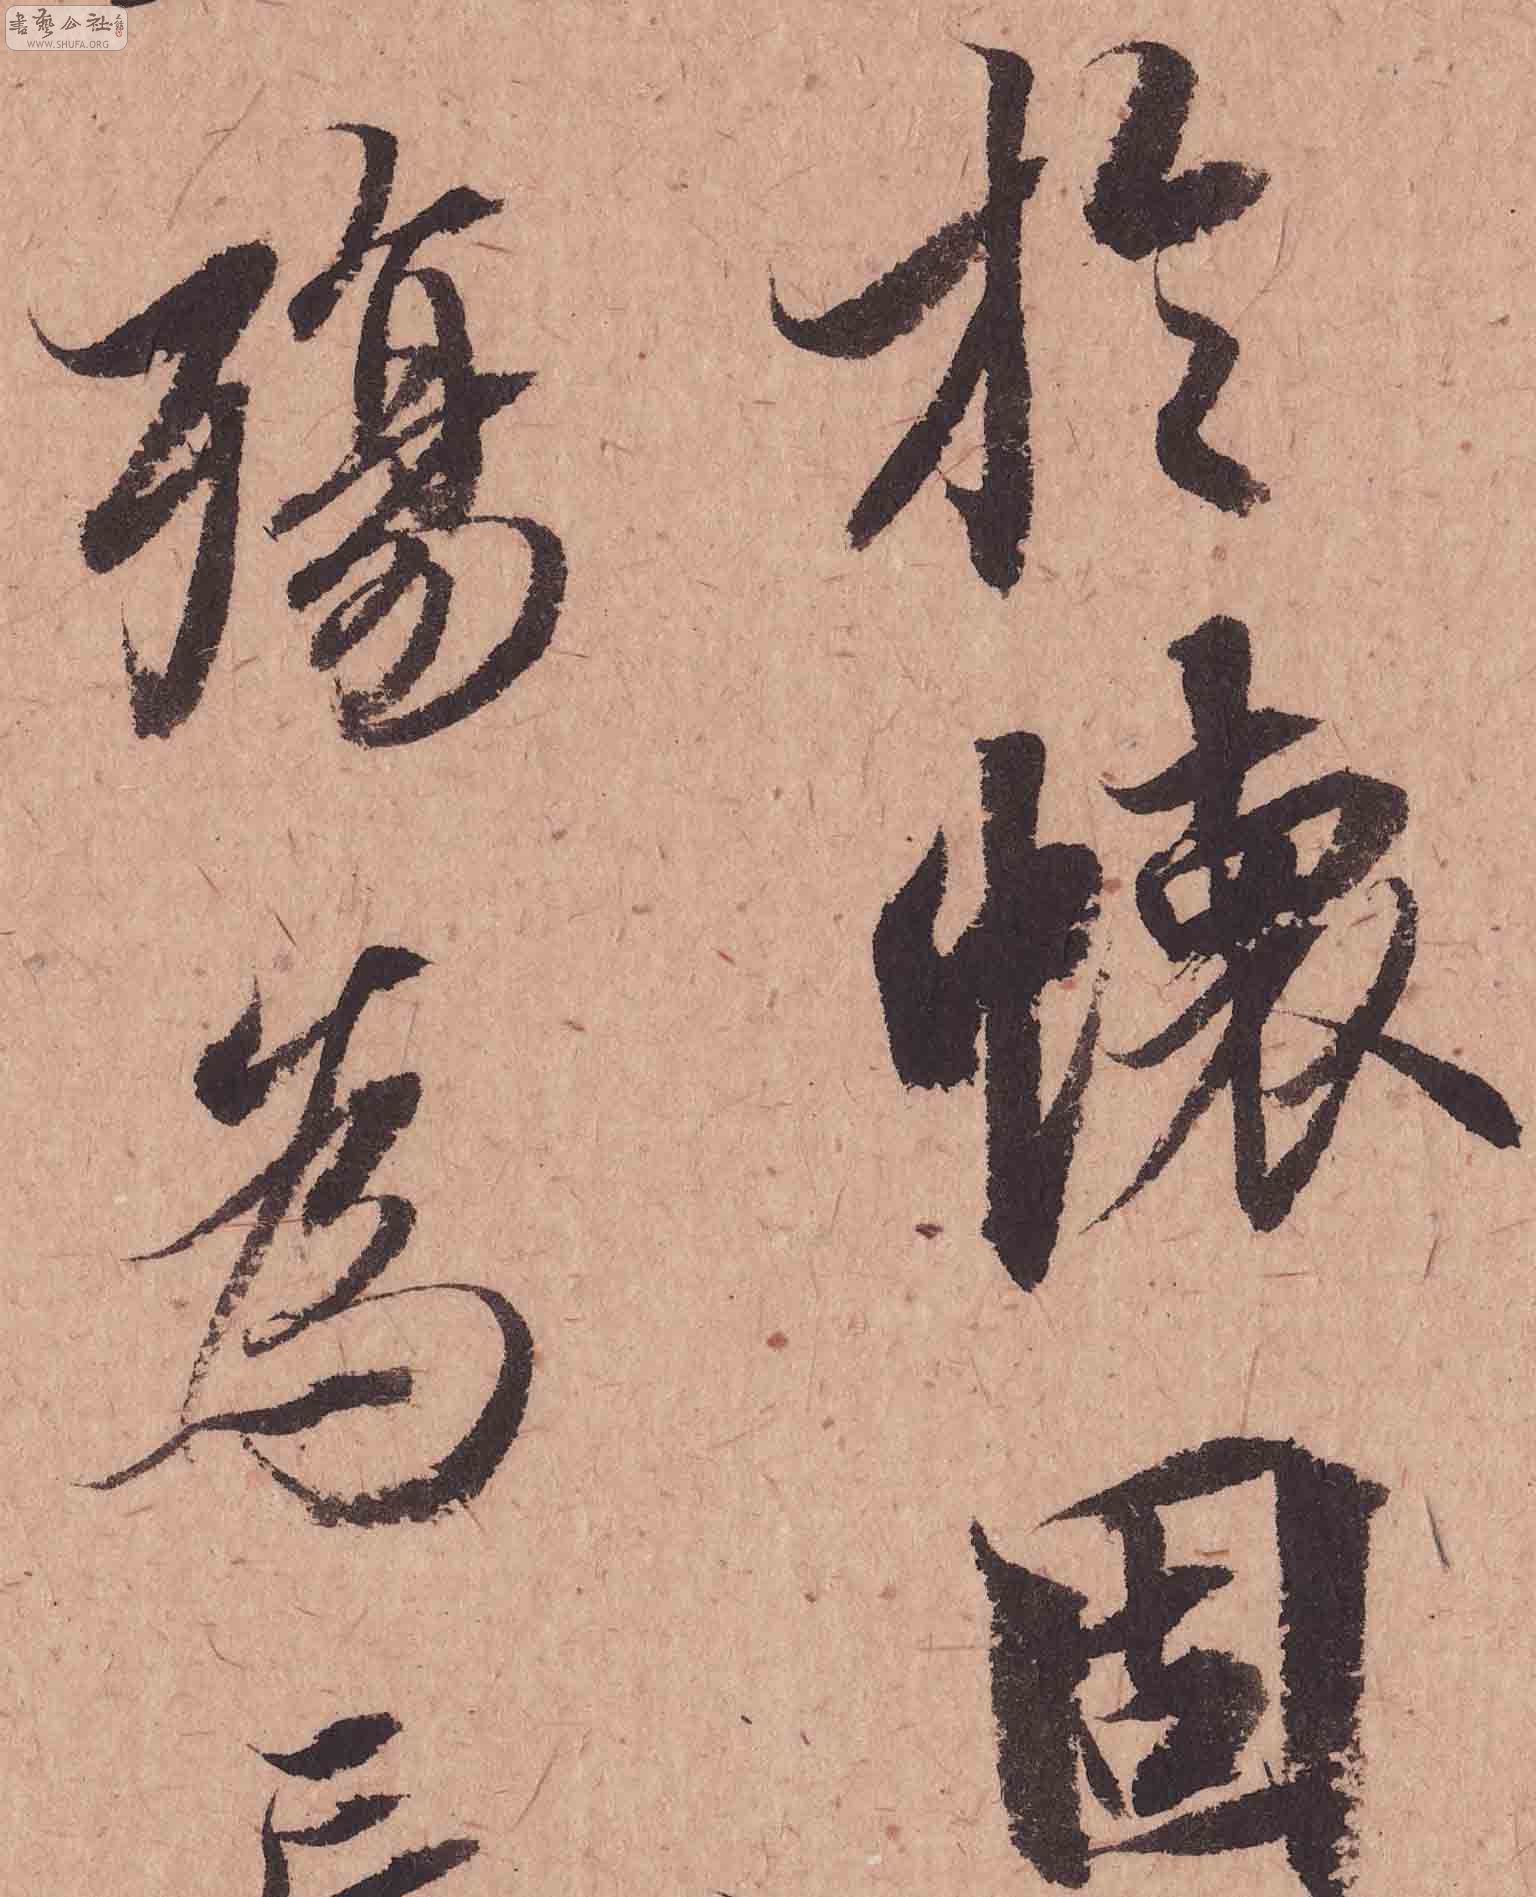 於懷固
殤為
書藝公社
WWW.SHUFA.ORG